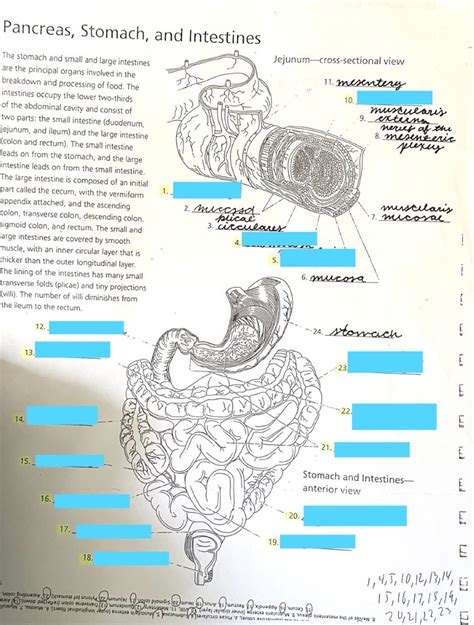 Pancreas, Stomach, and Intestines
The stomach and small and large intestines
are the principal organs involved in the
breakdown and processing of food. The
intestines occupy the lower two-thirds
of the abdominal cavity and consist of
two parts: the small intestine (duodenum,
jejunum, and ileum) and the large intestine
(colon and rectum). The small intestine
leads on from the stomach, and the large
intestine leads on from the small intestine.
The large intestine is composed of an initial
part called the cecum, with the vermiform
appendix attached, and the ascending
colon, transverse colon, descending colon,
sigmoid colon, and rectum. The small and
large intestines are covered by smooth
muscle, with an inner circular layer that is
thicker than the outer longitudinal layer.
The lining of the intestines has many small
transverse folds (plicae) and tiny projections
(villi). The number of villi diminishes from
the ileum to the rectum.
Jejunum—cross-sectional view
11. mesentery
10.
muscularis
9. externa
nerves of the
8. mesenteric
plexus
1.
2. mucosa
plicae
3. circulares
4.
5.
muscularis
7. mucosae
6. mucosa
12.
13.
14.
15.
16.
17.
18.
24. stomach
23.
22.
21.
Stomach and Intestines—
anterior view
20.
19.
1, 4, 5, 10, 12, 13, 14,
15, 16, 17, 18, 19,
20, 21, 22, 23